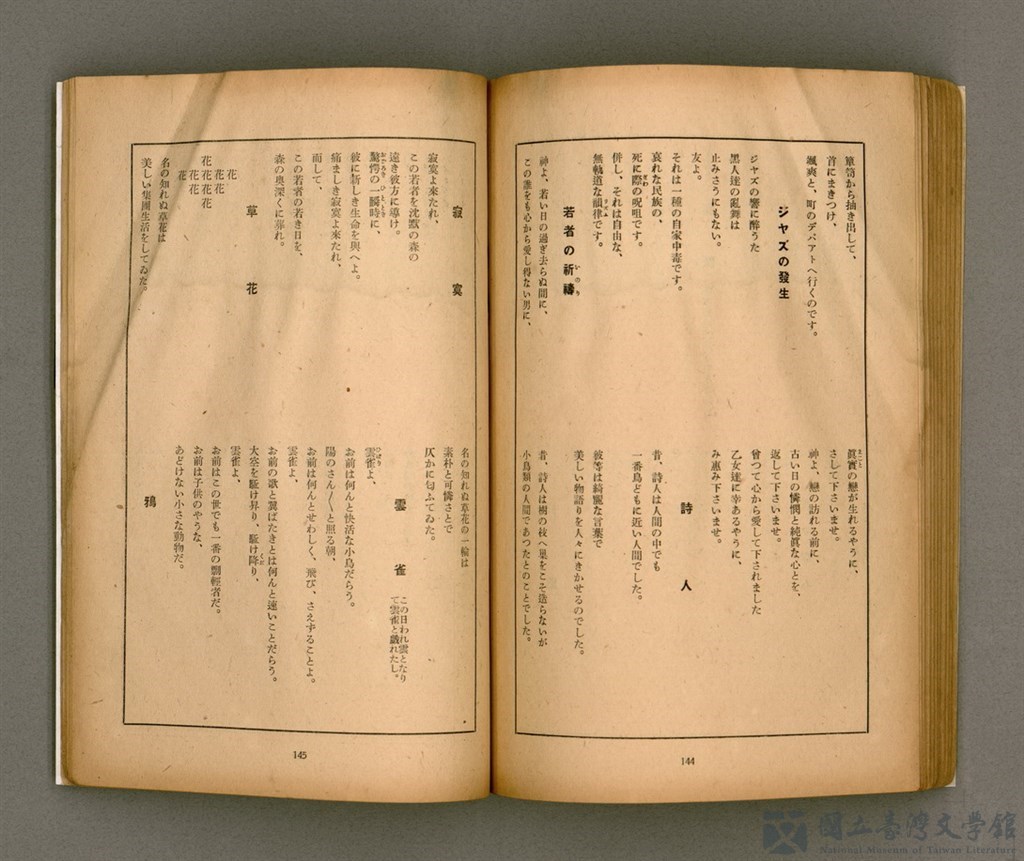 簞笥から抽き出して、
首にまきつけ、
颯爽と、町のデパアトへ行くのです。
ジヤズの發生
ジヤズの響に醉うた
黑人達の亂舞は
止みさうにもない。
友よ。
それは一種の自家中毒です。
哀れた民族の、
死に際の呪咀です。
併し、それは自由な、
無軌道な韻律です。
若者の祈禱
神よ、若い日の過ぎ去らぬ間に、
この誰をも心から愛し得ない男に、
眞實の戀が生れるやうに、
さして下さいませ。
神よ、戀の訪れる前に、
古い日の憐憫と純眞な心とを、
返して下さいませ。
曾つて心から愛して下されました
乙女達に幸あるやうに、
み惠み下さいませ。
詩人
昔、詩人は人間の中でも
一番鳥どもに近い人間でした。
彼等は綺麗な言葉で
美しい物語りを人々にきかせるのでした。
昔、詩人は樹の枝へ巢をこそ造らないが
小鳥類の人間であつたとのことでした。
144
寂寞
寂寞よ來たれ、
この若者を沈默の森の
遠き彼方に導け。
驚愕の一瞬時に、
彼に新しき生命を與へよ。
痛ましき寂寞よ來たれ、
而して、
この若者の若き日を、
森の奧深くに葬れ。
草花
花
花花
花花花花
花花
花
名の知れぬ草花は
美しい集團生活をしてゐた。
名の知れぬ草花の一輪は
素朴と可憐さとで
仄かに匂ふてゐた。
雲雀
この日われ雲となり
て雲雀と戲れたし。
雲雀よ、
お前は何んと快活な小鳥だらう。
陽のさん〱と照る朝、
お前は何んとせわしく、飛び、さえずることよ。
雲雀よ、
お前の歌と翼ばたきとは何んと速いことだらう。
大空を駈け昇り、駈け降り、
雲雀よ、
お前はこの世でも一番の剽輕者だ。
お前は子供のやうな、
あどけない小さな動物だ。
鴉
145
國立臺灣文學館
National Museum of Taiwan Literature